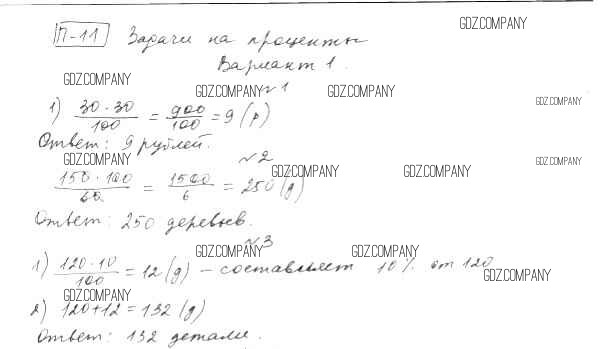 П-11 Задачи на проценты
GDZ.COMPANY
Вариант 1.
GDZ.COMPANY
GDZ.COMPANY №1 GDZ.COMPANY
GDZ.COMPANY
1) 30·30/100 = 900/100 = 9 (р)
Ответ: 9 рублей.
GDZ.COMPANY №2 GDZ.COMPANY
GDZ.COMPANY GDZ.COMPANY
150·100/60 = 1500/6 = 250 (д)
Ответ: 250 деревьев.
№3
GDZ.COMPANY GDZ.COMPANY
1) 120·10/100 = 12 (д) – составляет 10% от 120
GDZ.COMPANY
GDZ.COMPANY
2) 120+12=132 (д)
Ответ: 132 детали.